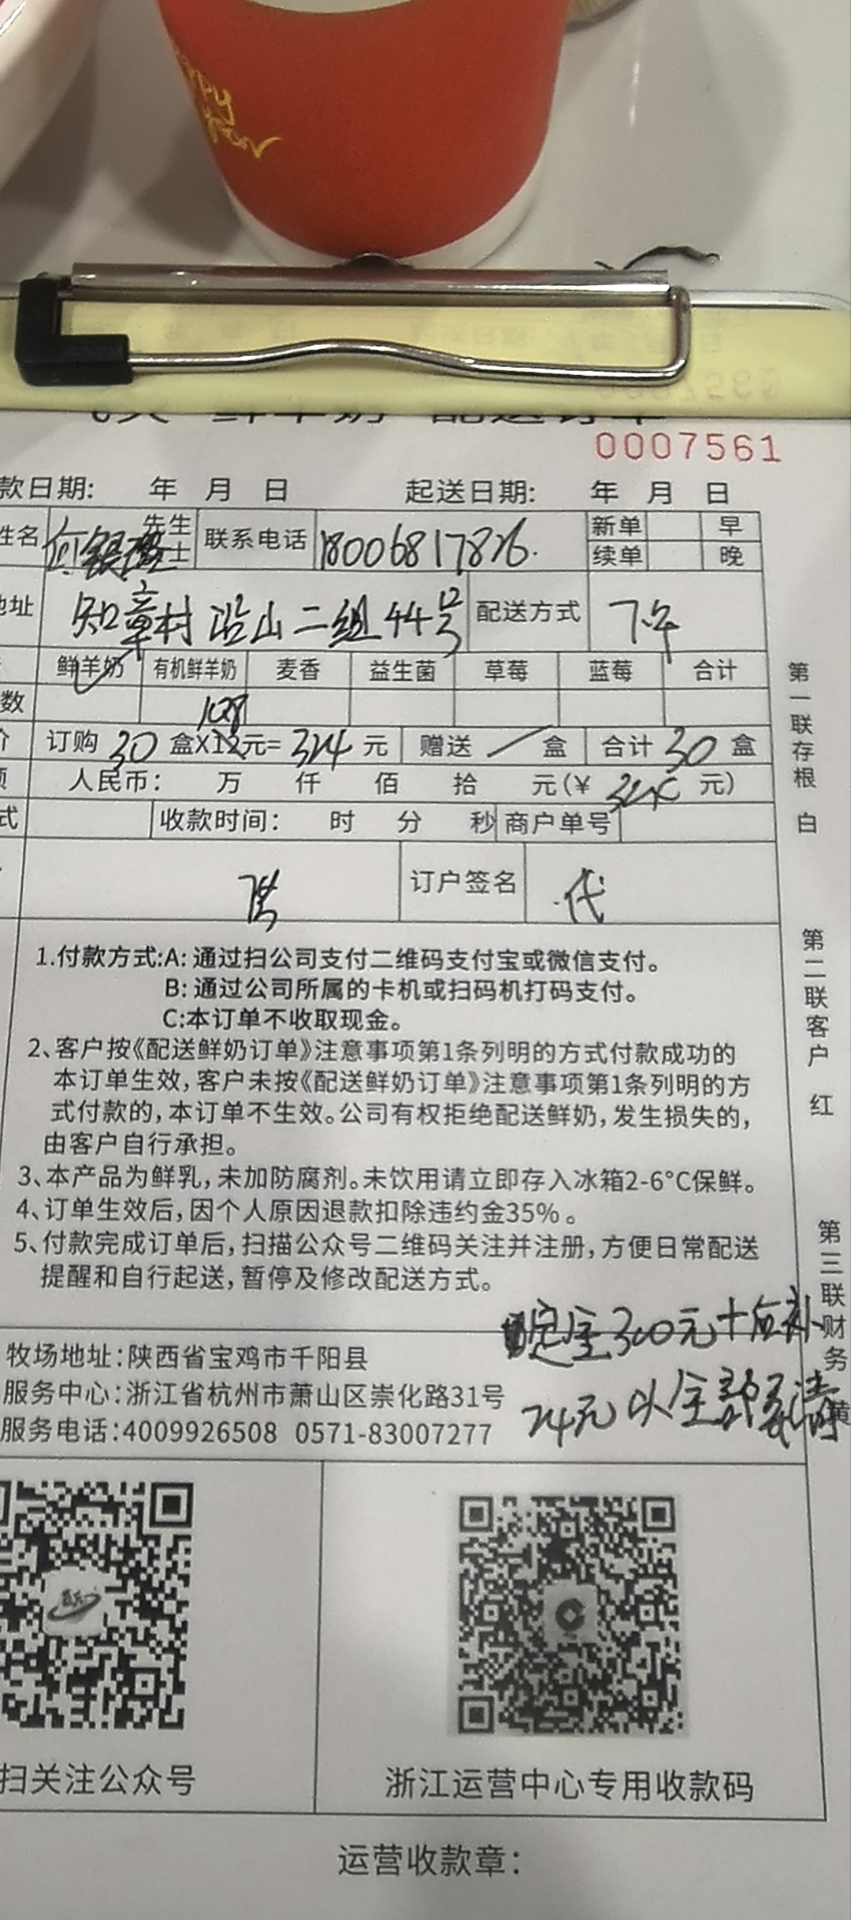 0007561
款日期: 年 月 日 起送日期: 年 月 日
姓名 何银 先生 士 联系电话 18006817826. 新单 早
续单 晚
地址 知章村 沿山二组44号 配送方式 下午
鲜羊奶 有机鲜羊奶 麦香 益生菌 草莓 蓝莓 合计
数
订购 30 盒X12元= 10.8 324 元 赠送 / 盒 合计 30 盒
人民币: 万 仟 佰 拾 元(¥ 324 元)
式 收款时间: 时 分 秒 商户单号
订户签名 代
1.付款方式:A: 通过扫公司支付二维码支付宝或微信支付。
B: 通过公司所属的卡机或扫码机打码支付。
C:本订单不收取现金。
2、客户按《配送鲜奶订单》注意事项第1条列明的方式付款成功的
本订单生效,客户未按《配送鲜奶订单》注意事项第1条列明的方
式付款的,本订单不生效。公司有权拒绝配送鲜奶,发生损失的,
由客户自行承担。
3、本产品为鲜乳,未加防腐剂。未饮用请立即存入冰箱2-6°C保鲜。
4、订单生效后,因个人原因退款扣除违约金35%。
5、付款完成订单后,扫描公众号二维码关注并注册,方便日常配送
提醒和自行起送,暂停及修改配送方式。
定金300元+应补
24元 以全款 清
牧场地址:陕西省宝鸡市千阳县
服务中心:浙江省杭州市萧山区崇化路31号
服务电话:4009926508 0571-83007277
扫关注公众号
浙江运营中心专用收款码
运营收款章:
第一联存根 白
第二联客户 红
第三联财务 黄